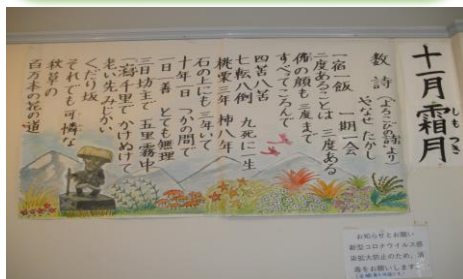 十一月 霜月
しもつき
数詩 (よろこびの詩より
やなせたかし
一宿一飯 一期一会
二度あることは 三度ある
佛の顔も 三度まで
すべてころんで
四苦八苦
七転八倒 九死に一生
桃栗三年 柿八年
石の上にも 三年いて
十年一日 つかの間で
一日一善 とても無理
三日坊主で 五里霧中
一瀉千里で かけぬけて
老い先みじかい
くだり坂
それでも 可憐な
秋草の
百万本の花の道
お知らせとお願い
新型コロナウイルス感
染拡大防止のため、消
毒をお願いします。